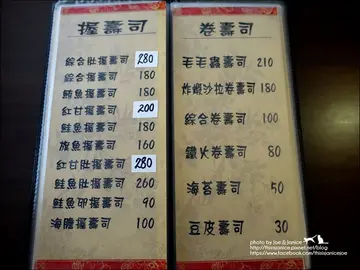 握壽司
綜合肚握壽司 280
綜合握壽司 180
鮪魚握壽司 180
紅甘握壽司 200
鮭魚握壽司 180
旗魚握壽司 160
紅甘肚握壽司 280
鮭魚肚握壽司 260
鮭魚卵握壽司 90
海膽握壽司 100
卷壽司
毛毛蟲壽司 210
炸蝦沙拉卷壽司 180
綜合卷壽司 100
鐵火卷壽司 80
海苔壽司 50
豆皮壽司 30
photo by Joe & Janice
http://thisisanice.pixnet.net/blog
https://www.facebook.com/thisisanicejoe